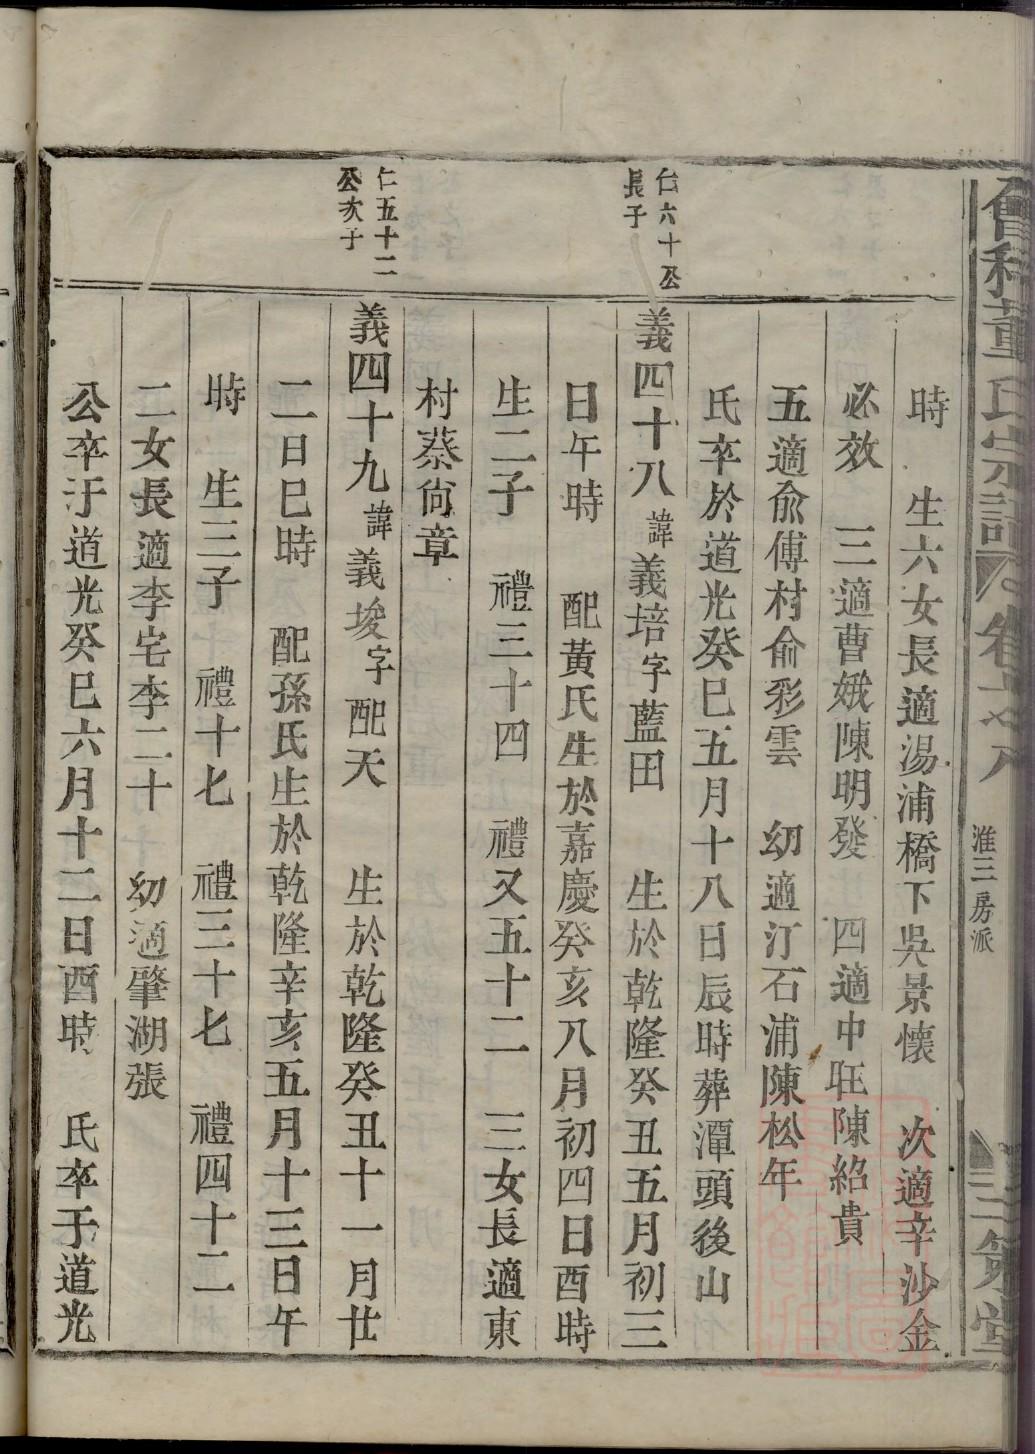 會稽董氏宗譜 卷 淮三房派 三策堂
時 生六女長適湯浦橋下吳景懷 次適辛沙金
必效 三適曹娥陳明發 四適中旺陳紹貴
五適俞傅村俞彩雲 幼適汀石浦陳松年
氏卒於道光癸巳五月十八日辰時葬潭頭後山
仁六十公
長子
義四十八諱義培字藍田 生於乾隆癸丑五月初三
日午時 配黃氏生於嘉慶癸亥八月初四日酉時
生二子 禮三十四 禮又五十二 三女長適東
村蔡尙章
仁五十二
公次子
義四十九諱義埈字配天 生於乾隆癸丑十一月廿
二日巳時 配孫氏生於乾隆辛亥五月十三日午
時 生三子 禮十七 禮三十七 禮四十二
二女長適李宅李二十 幼適肇湖張
公卒于道光癸巳六月十二日酉時 氏卒于道光